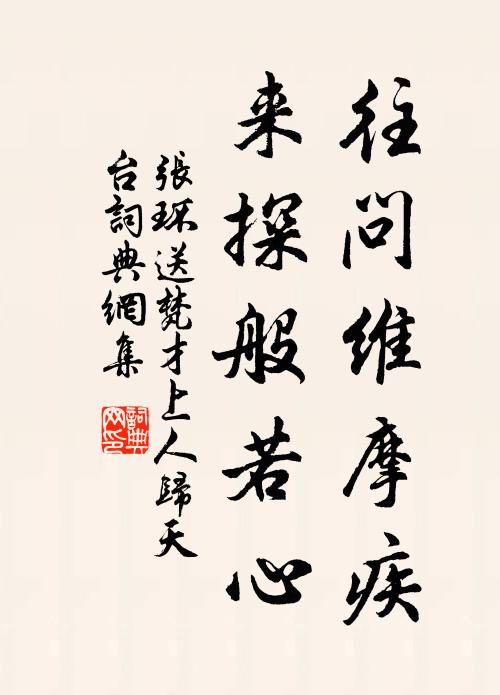 往問維摩疾
来探般若心
張環送梵才上人歸天
台詞典網集
詞典
网印